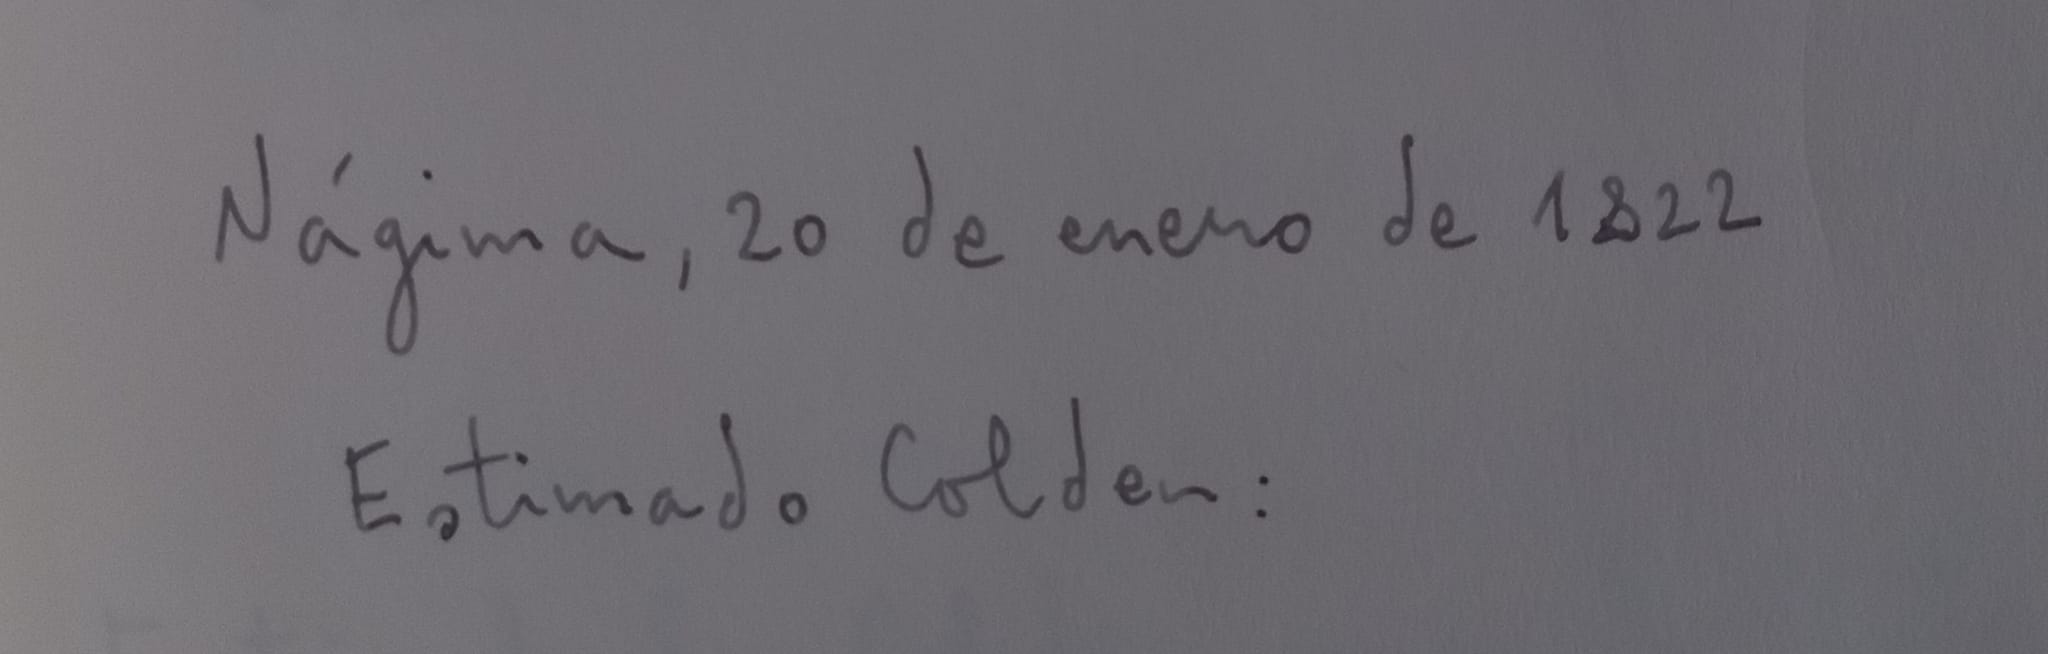 Nágima, 20 de enero de 1822
Estimado Colden: